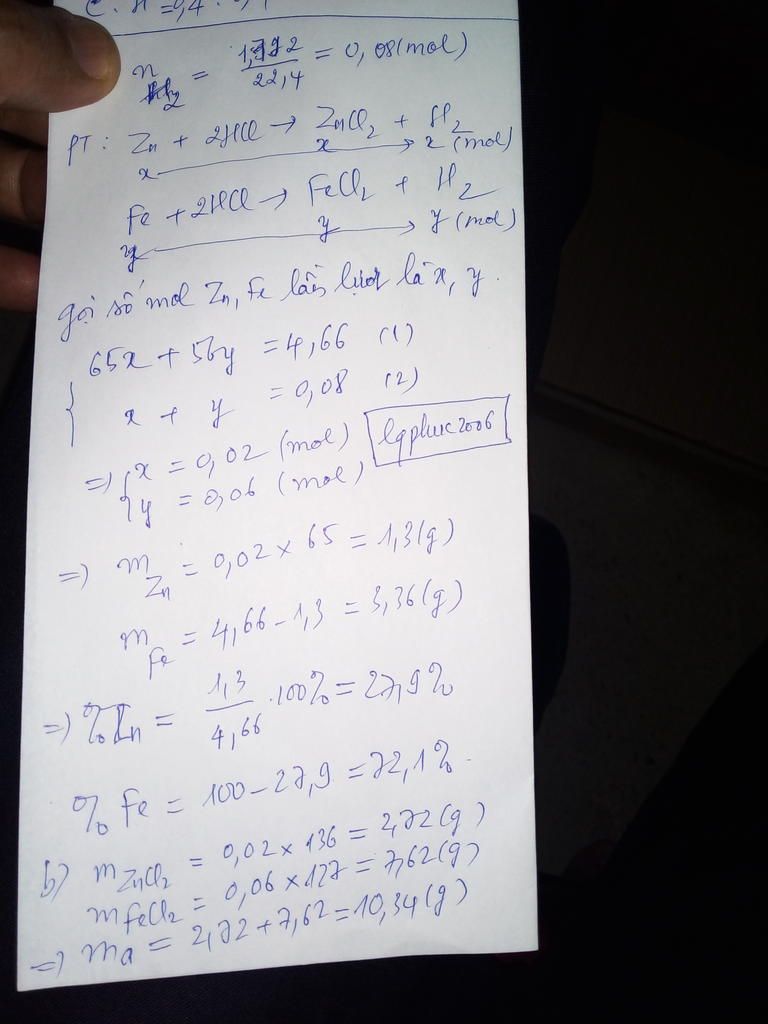 n H2 = 1,792 / 22,4 = 0,08 (mol)
PT : Zn + 2HCl → ZnCl2 + H2
x x x (mol)
Fe + 2HCl → FeCl2 + H2
y y y (mol)
gọi số mol Zn, Fe lần lượt là x, y.
65x + 56y = 4,66 (1)
x + y = 0,08 (2)
=> x = 0,02 (mol)
lqphuc2006
y = 0,06 (mol)
=) m Zn = 0,02 x 65 = 1,3 (g)
m Fe = 4,66 - 1,3 = 3,36 (g)
=) % Zn = 1,3 / 4,66 . 100% = 27,9%
% Fe = 100 - 27,9 = 72,1%.
b) m ZnCl2 = 0,02 x 136 = 2,72 (g)
m FeCl2 = 0,06 x 127 = 7,62 (g)
=) ma = 2,72 + 7,62 = 10,34 (g)